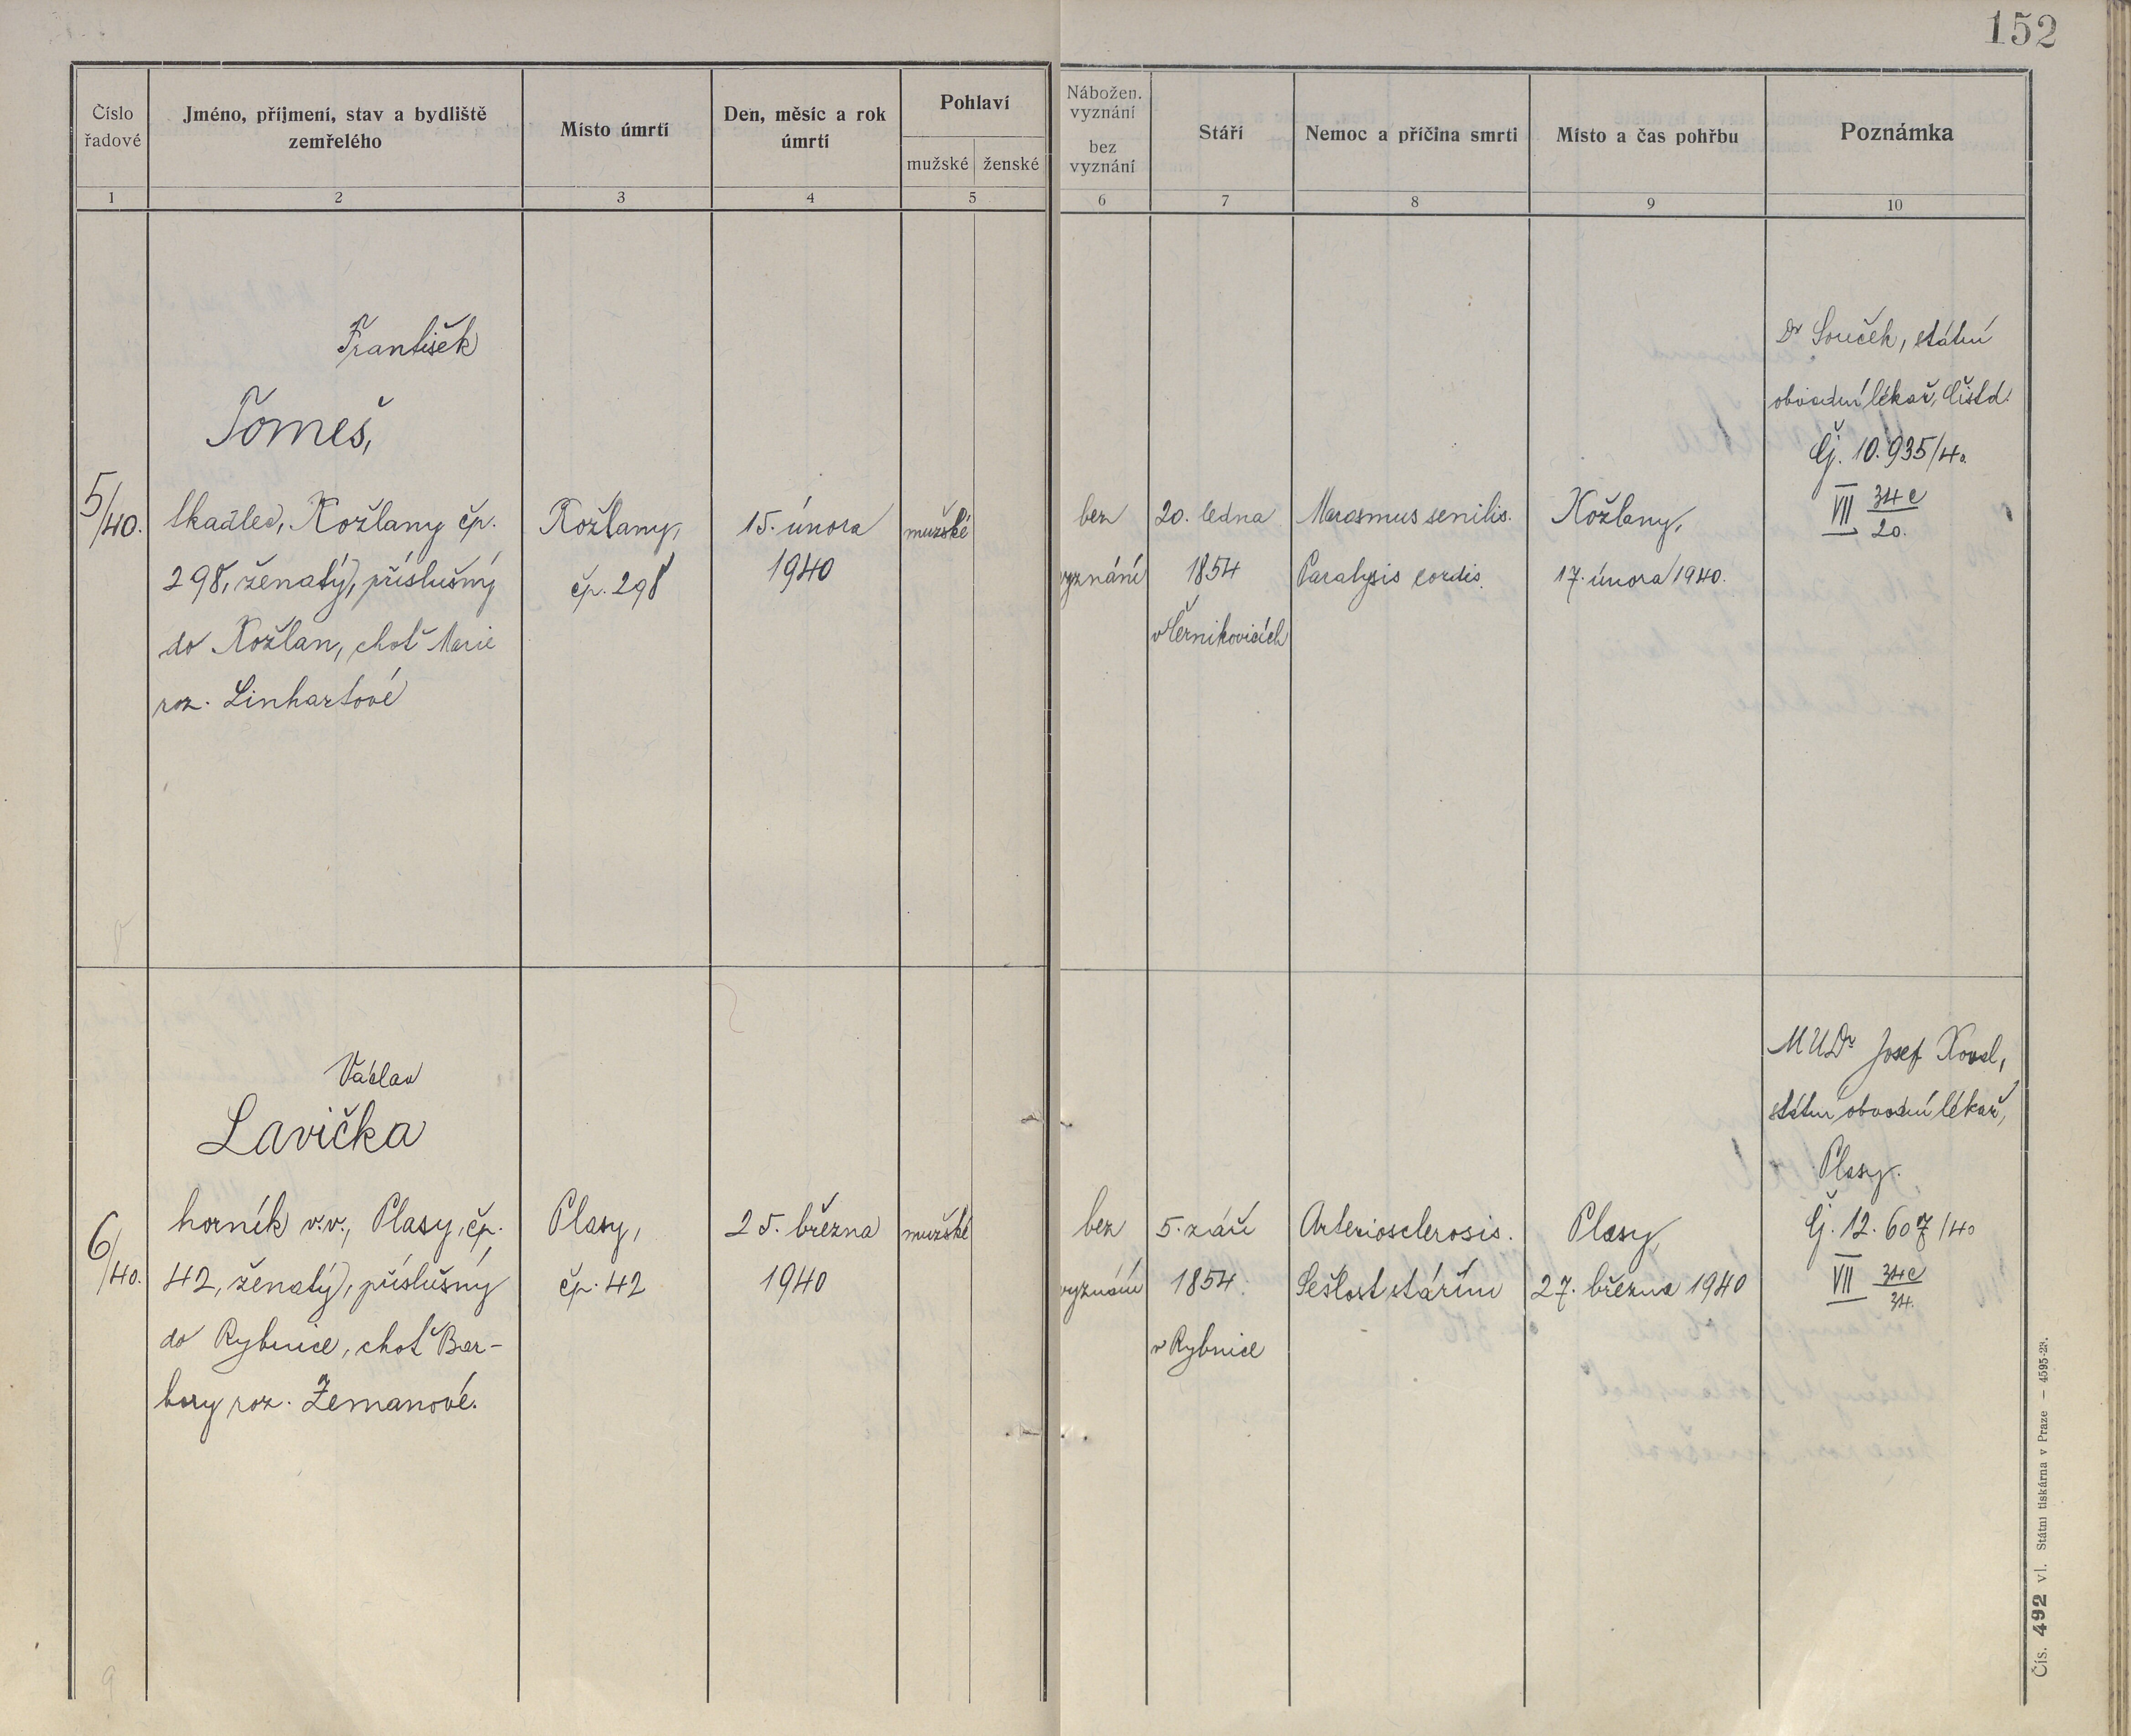 152
Číslo
řadové
Jméno, příjmení, stav a bydliště
zemřelého
Místo úmrtí
Den, měsíc a rok
úmrtí
Pohlaví
mužské
ženské
Nábožen.
vyznání
bez
vyznání
Stáří
Nemoc a příčina smrti
Místo a čas pohřbu
Poznámka
1
2
3
4
5
6
7
8
9
10
5/40.
František
Tomeš,
tkadlec, Kožlany čp.
298, ženatý, příslušný
do Kožlan, choť Marie
roz. Linhartové
Kožlany,
čp. 298
15. února
1940
mužské
bez
vyznání
20. ledna
1854
v Černikovicích
Marasmus senilis.
Paralysis cordis.
Kožlany,
17. února 1940.
Dr Souček, státní
obvodní lékař, Čistá.
Čj. 10.935/40.
VII 34c
20.
6/40.
Václav
Lavička
horník v.v., Plasy, čp.
42, ženatý, příslušný
do Rybnice, choť Bar-
bory roz. Zemanové.
Plasy,
čp. 42
25. března
1940
mužské
bez
vyznání
5. září
1854.
v Rybnice
Arteriosclerosis.
Sešlost stářím
Plasy,
27. března 1940
MUDr Josef
státní obvodní lékař,
Plasy.
Čj. 12.607/40
VII 34c
34.
Čís. 492 vl. Státní tiskárna v Praze — 4595-28.